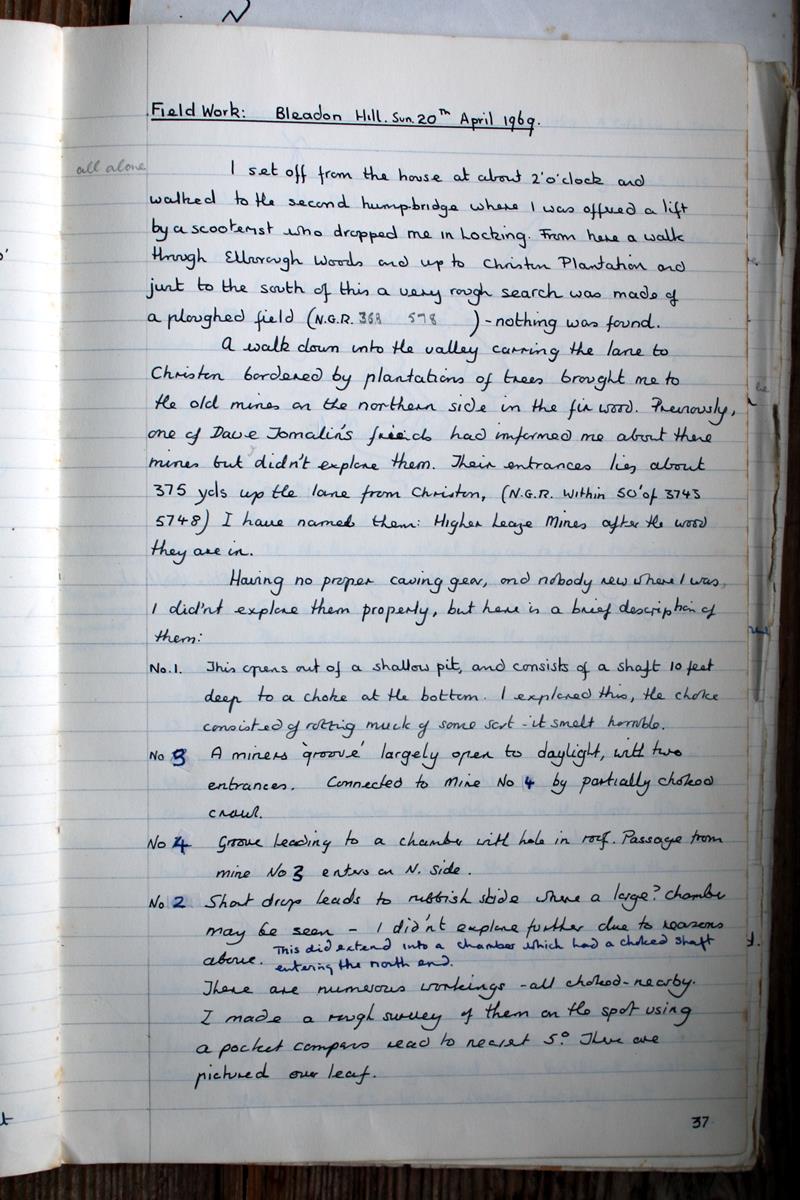 Field Work: Bleadon Hill. Sun. 20th April 1969.
all alone
I set off from the house at about 2'o'clock and
walked to the second humpbridge where I was offered a lift
by a scooterist who dropped me in Locking. From here a walk
through Ellborough Woods and up to Christon Plantation and
just to the south of this a very rough search was made of
a ploughed field (N.G.R. 368 578 ) - nothing was found.
A walk down into the valley carring the lane to
Christon bordered by plantations of trees brought me to
the old mines on the northern side in the fir wood. Previously,
one of Dave Tomalin's friends had informed me about these
mines but didn't explore them. Their entrances lies about
375 yds up the lane from Christon, (N.G.R. within 50' of 3743
5748) I have named them: Higher Leaze Mines after the wood
they are in.
Having no proper caving gear, and nobody new where I was,
I did'nt explore them properly, but here is a brief description of
them:
No.1. This opens out of a shallow pit, and consists of a shaft 10 feet
deep to a choke at the bottom. I explored this, the choke
consisted of rotting muck of some sort - it smelt horrible.
No 3 A miners 'groove' largely open to daylight, with two
entrances. Connected to Mine No 4 by partially choked
crawl.
No 4 Groove leading to a chamber with hole in roof. Passage from
mine No 3 enters on N. side.
No 2 Short drop leads to rubbish slide where a large? chamber
may be seen - I did'nt explore further due to reasons
above. This did extend into a chamber which had a choked shaft
entering the north end.
There are numerous workings - all choked - nearby.
I made a rough survey of them on the spot using
a pocket compass read to nearest 5°. These are
pictured over leaf.
37